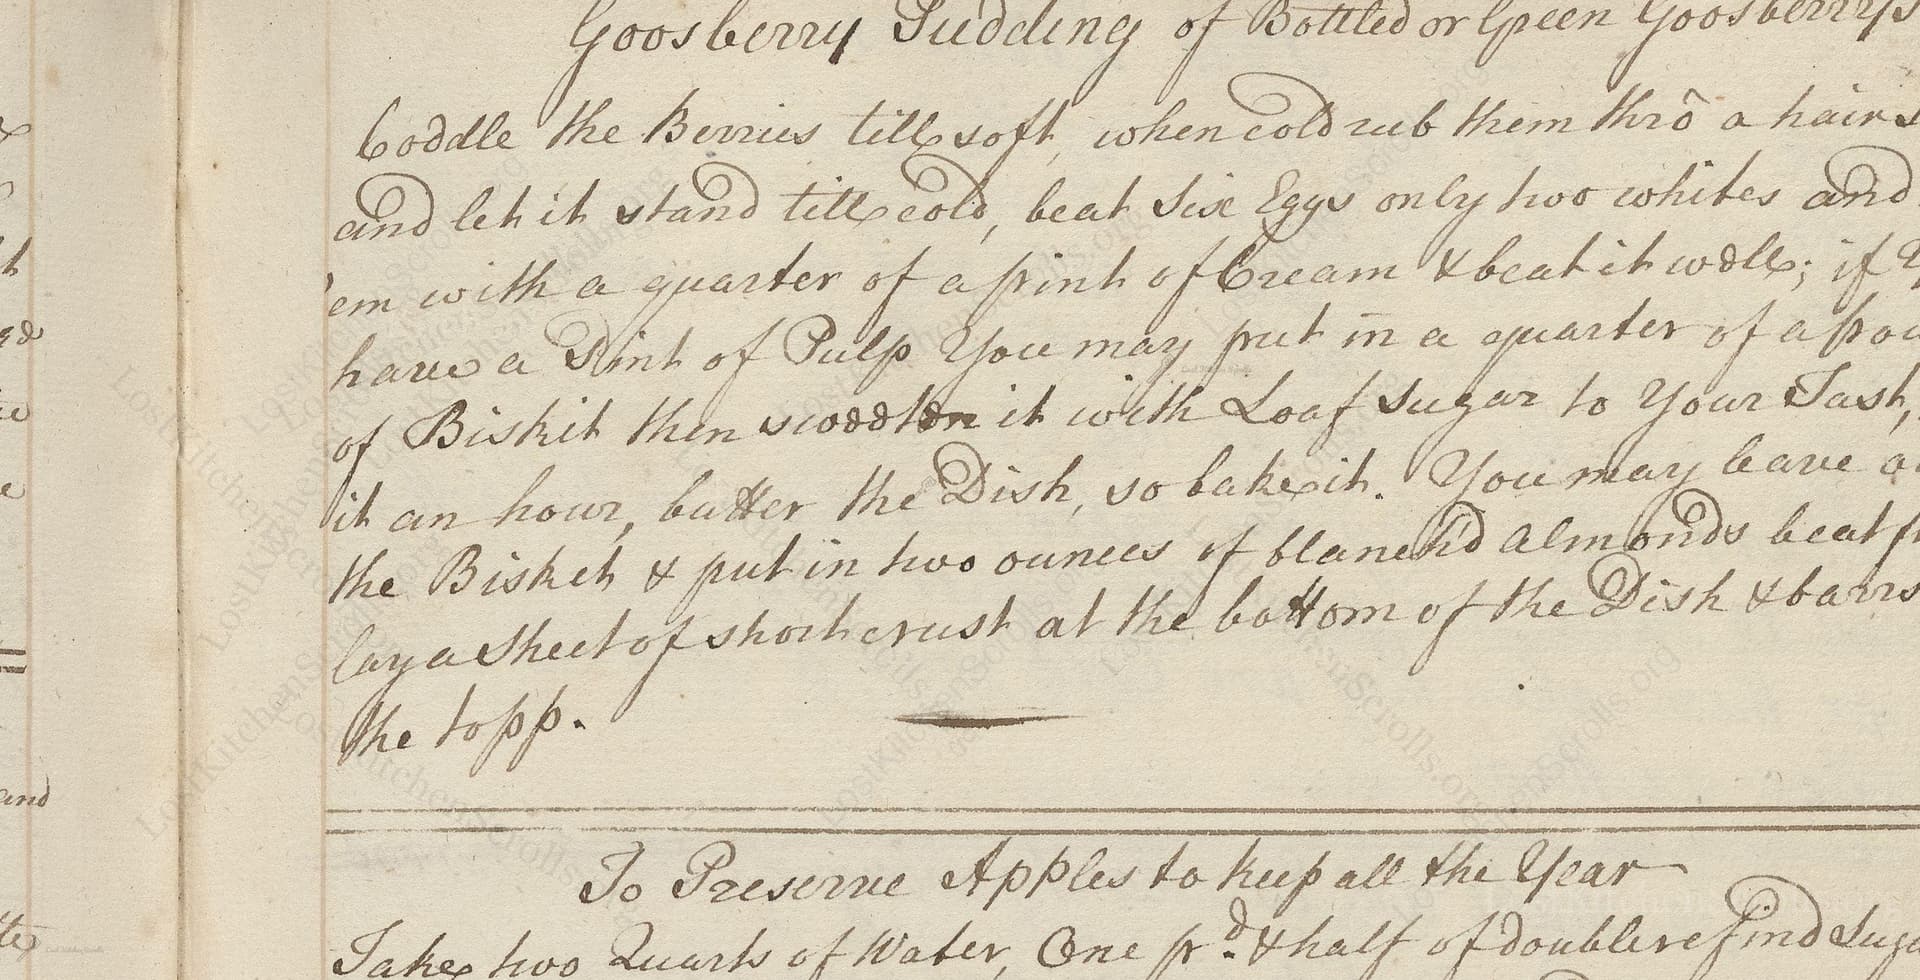 Goosberry Pudding of Bottled or Green Goosberrys
Coddle the Berries till soft, when cold rub them thrô a hair
and let it stand till cold, beat Six Eggs only two whites and
'em with a quarter of a pint of Cream & beat it well; if
have a Pint of Pulp You may put in a quarter of a
of Biskit then sweeten it with Loaf Sugar to Your Tast,
it an hour, butter the Dish, so bake it. You may leave
the Bisket & put in two ounces of blanch'd Almonds beat
lay a Sheet of short crust at the bottom of the Dish & barrs
the topp.
To Preserve Apples to keep all the Year
Take two Quarts of Water, One pd. & half of double refind
and